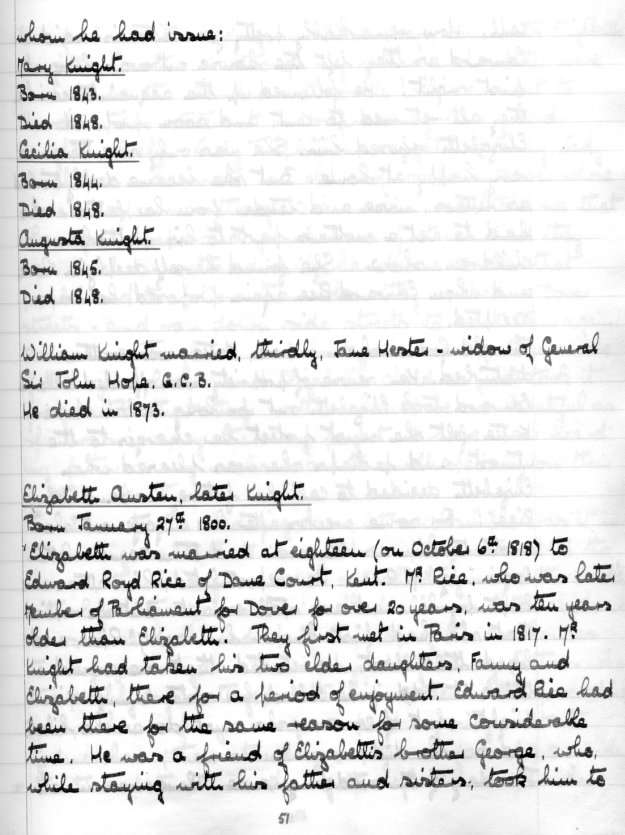 whom he had issue:
Mary Knight.
Born 1843.
Died 1848.
Cecilia Knight.
Born 1844.
Died 1848.
Augusta Knight.
Born 1845.
Died 1848.
William Knight married, thirdly, Jane Hester - widow of General
Sir John Hope. G.C.B.
He died in 1873.
Elizabeth Austen, later Knight.
Born January 27th 1800.
"Elizabeth was married at eighteen (on October 6th 1818) to
Edward Royd Rice of Dane Court, Kent. Mr Rice, who was later
Member of Parliament for Dover for over 20 years, was ten years
older than Elizabeth. They first met in Paris in 1817. Mr
Knight had taken his two elder daughters, Fanny and
Elizabeth, there for a period of enjoyment. Edward Rice had
been there for the same reason for some considerable
time. He was a friend of Elizabeth's brother George, who,
while staying with his father and sisters, took him to
51